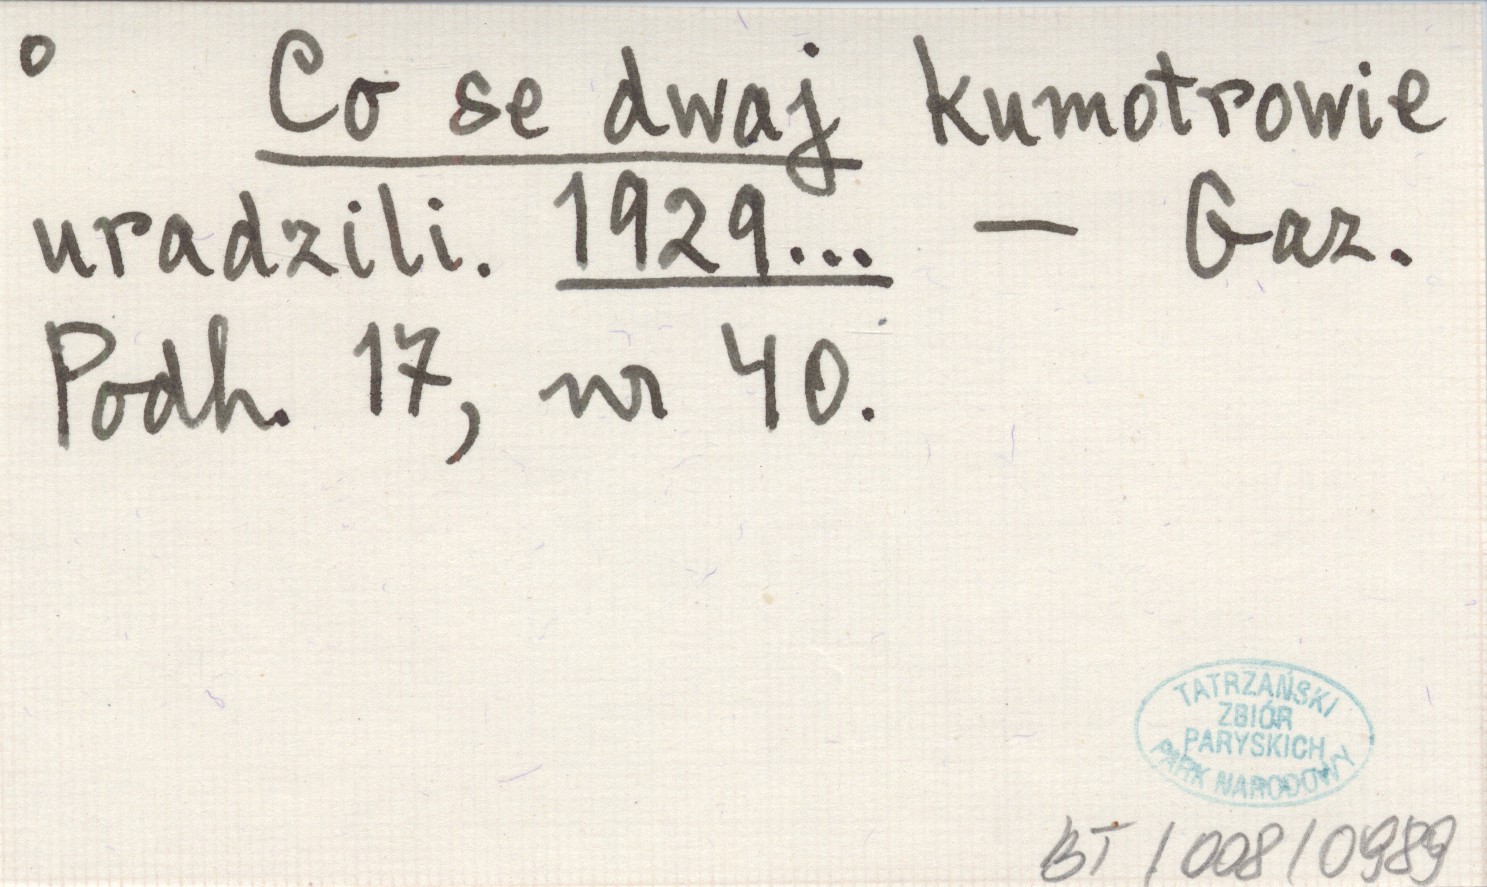 o Co se dwaj kumotrowie
uradzili. 1929... — Gaz.
Podh. 17, nr 40.
TATRZAŃSKI
ZBIÓR
PARYSKICH
PARK NARODOWY
BT / 008 / 0989